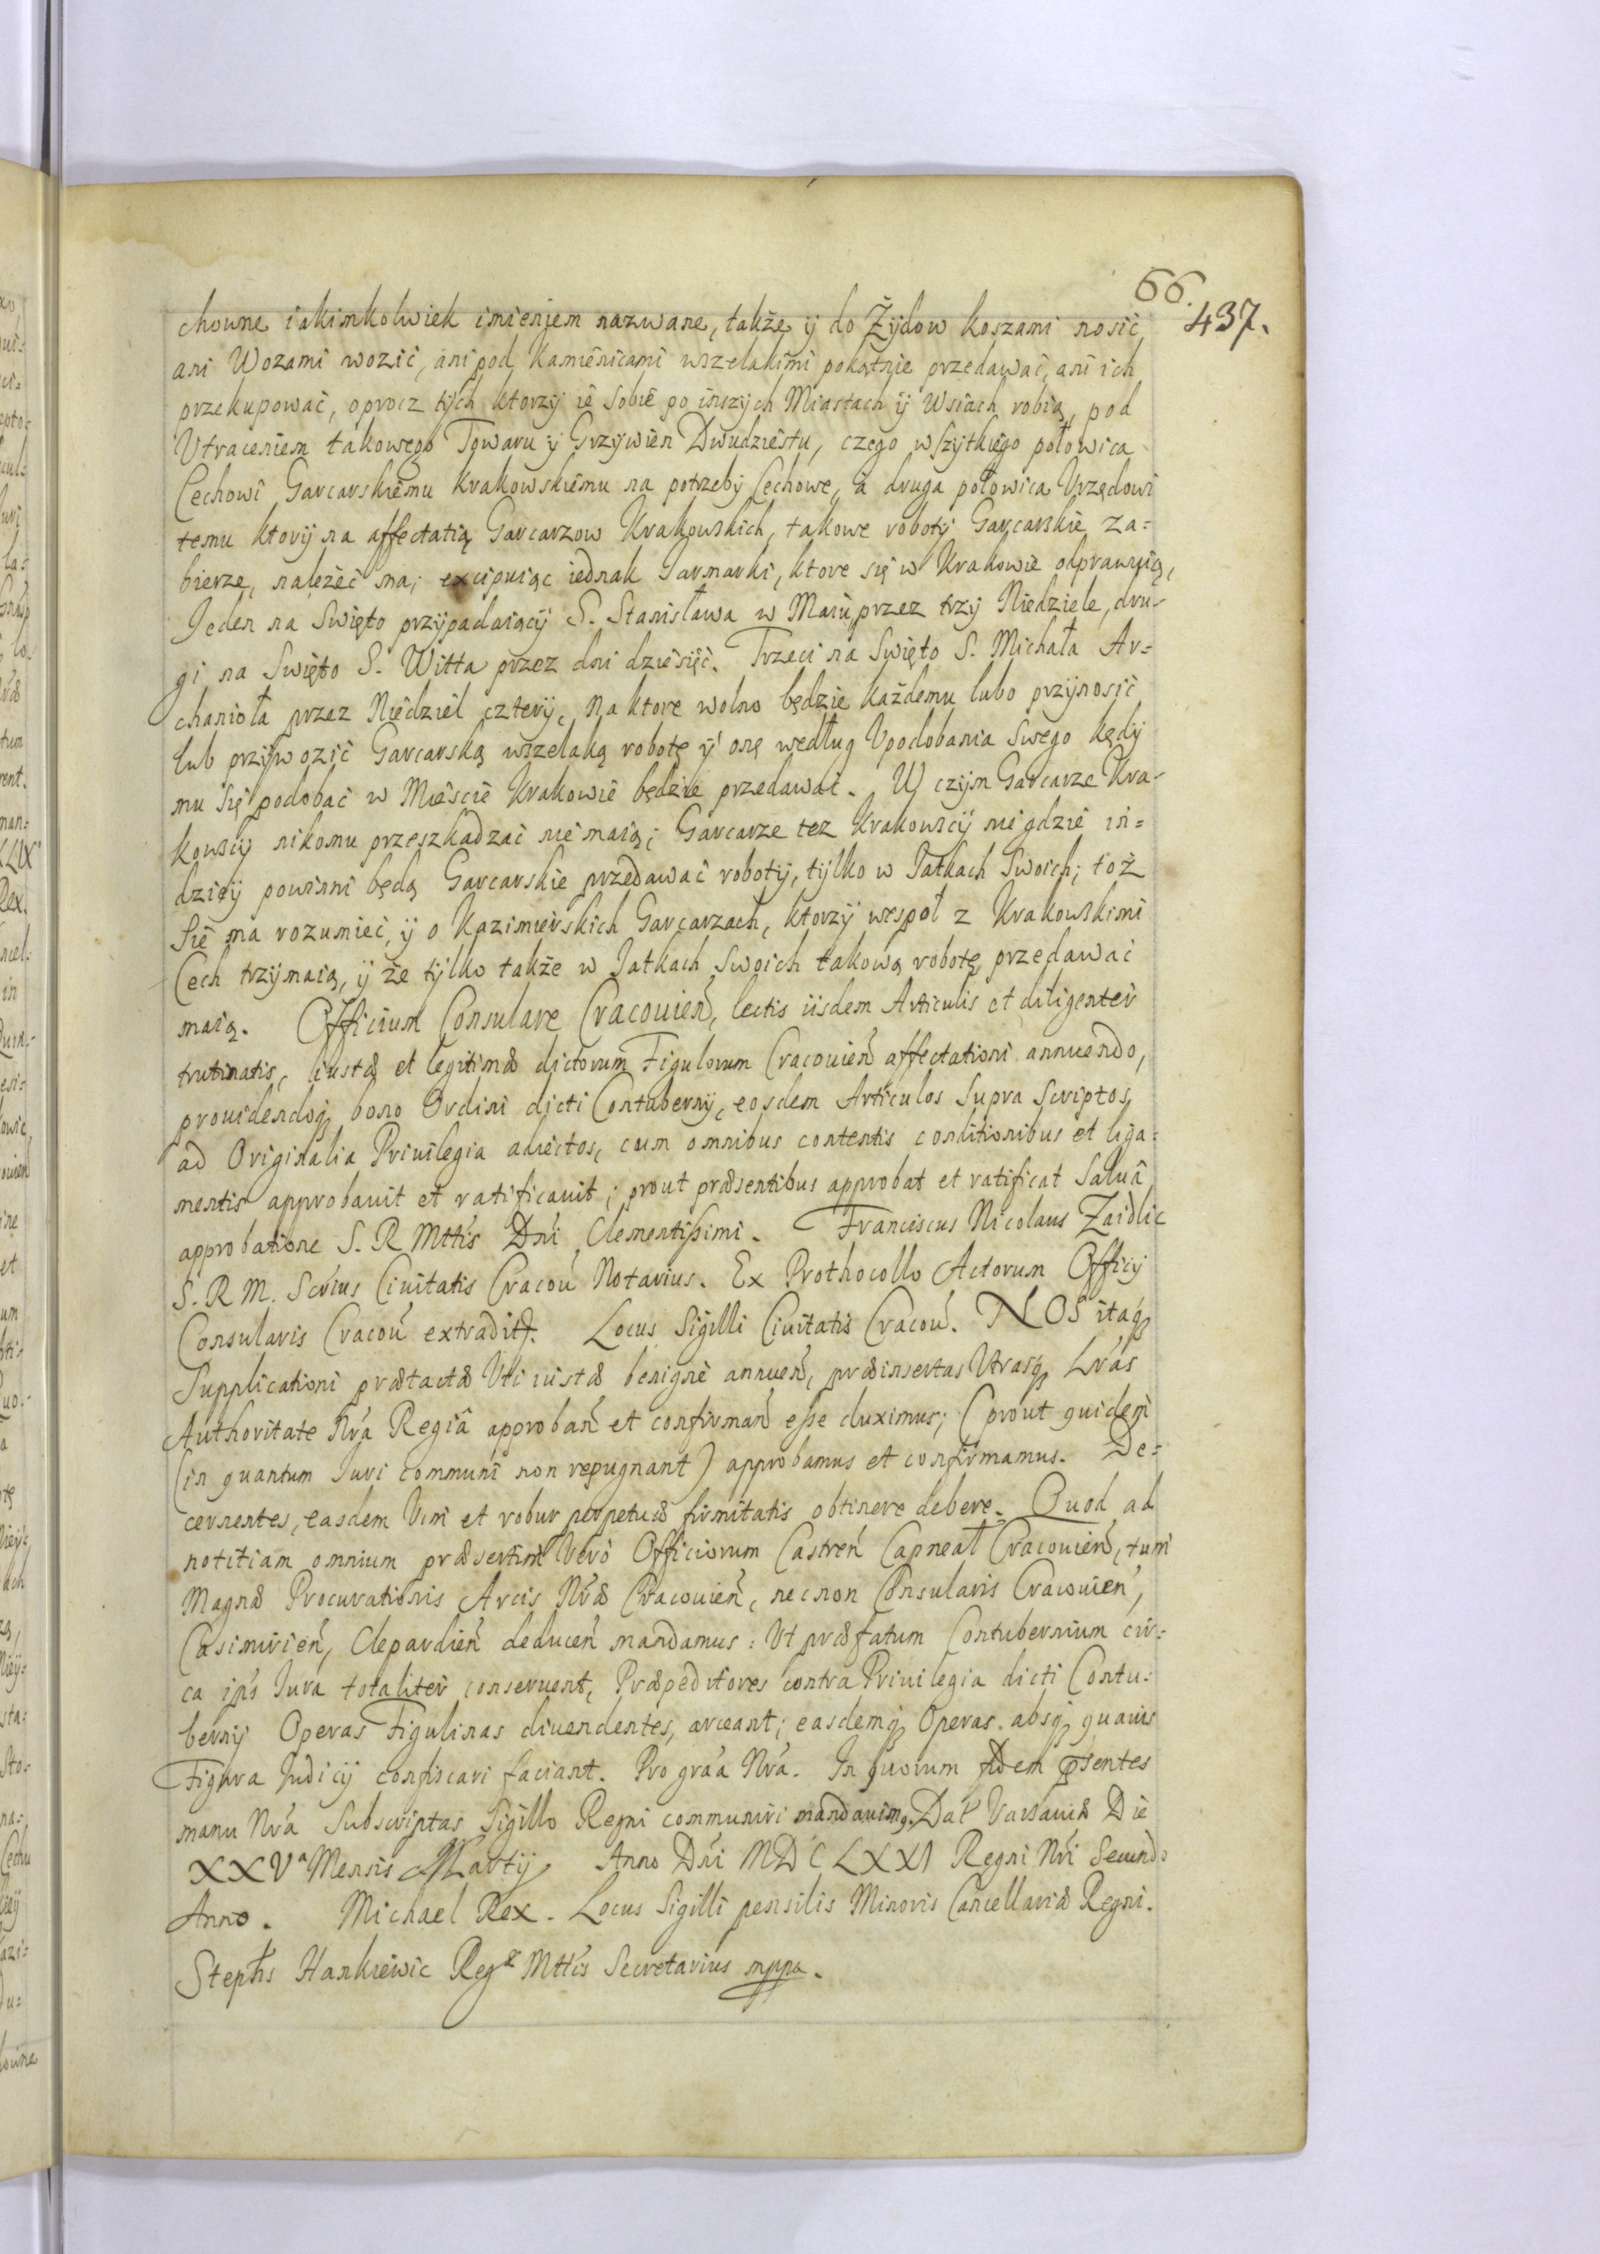 66.
437.
chowne iakimkolwiek imieniem nazwane, także ÿ do Żÿdow koszami nosić
ani Wozami wozić, ani pod Kamienicami wszelakimi pokątnie przedawać, ani ich
przekupować, oprocz tÿch ktorzÿ ie sobie po inszÿch Miastach ÿ Wsiach robią, pod
Vtraceniem takowego Towaru ÿ Grzÿwien Dwudziestu, czego wszÿtkiego połowica
Cechowi Garcarskiemu Krakowskiemu na potrzebÿ Cechowe, a druga połowica Vrzędowi
temu ktorÿ na affectatią Garcarzow Krakowskich, takowe robotÿ Garcarskie za=
bierze, należeć ma; excipuiąc iednak Jarmarki, ktore się w Krakowie odprawuią,
Jeden na Swięto przÿpadaiącÿ S. Stanisława w Maiu przez trzÿ Niedziele, dru-
gi na Swięto S. Witta przez dni dziesięć. Trzeci na Swięto S. Michała Ar=
chanioła przez Niedziel czterÿ, na ktore wolno będzie każdemu lubo przÿnosić
lub przÿwozić Garcarską wszelaką robotę ÿ onę według Vpodobania swego kędÿ
mu się podobać w Miescie Krakowie będzie przedawać. W czÿm Garcarze Kra-
kowscÿ nikomu przeszkadzać nie maią; Garcarze tez Krakowscÿ nie gdzie in=
dzieÿ powinni będą Garcarskie przedawać robotÿ, tÿlko w Jatkach Swoich; toż
Się ma rozumieć, ÿ o Kazimierskich Garcarzach, ktorzÿ wespoł z Krakowskimi
Cech trzÿmaią, ÿ że tÿlko także w Jatkach Swoich takową robotę przedawać
maią. Officium Consulare Cracouień, lectis iisdem Articulis et diligenter
trutinatis, iustæ et legitimæ dictorum Figulorum Cracouień affectationi annuendo,
prouidendoq bono Ordini dicti Contubernÿ, eosdem Articulos Supra Scriptos,
ad Originalia Priuilegia adiectos, cum omnibus contentis conditionibus et liga=
mentis approbauit et ratificauit; prout præsentibus approbat et ratificat Saluâ
approbatione S. R Mttis Dńi Clementissimi. Franciscus Nicolaus Zaidlic
S. R M. Scrius Ciuitatis Cracou Notarius. Ex Prothocollo Actorum Officÿ
Consularis Cracou extradit. Locus Sigilli Ciuitatis Cracou. NOS itaq
Supplicationi prætactæ Vti iustæ benignè annueń, præinsertas Vtrasq Lras
Authoritate Nrá Regiâ approbań et confirmań esse duximus; (prout quidem
(in quantum Iuri communi non repugnant) approbamus et confirmamus. De=
cernentes, easdem Vim et robur perpetuæ firmitatis obtinere debere. Quod ad
notitiam omnium præsertim Verò Officiorum Castreń Capneał Cracouień, tum
Magnæ Procurationis Arcis Nræ Cracouień, necnon Consularis Cracouień,
Casimirień, Clepardień deduceń mandamus: Vt præfatum Contubernium cir=
ca ips Iura totaliter conseruent, Præpeditores contra Priuilegia dicti Contu=
bernÿ Operas Figulinas diuendentes, arceant; easdemq Operas absq quauis
Figura Iudicÿ confiscari faciant. Pro gráa Nrá. In quorum fidem psentes
manu Nrá Subscriptas Sigillo Regni communiri mandauimg. Dat Varsauiæ Die
XXVa Mensis Martÿ Anno Dńi MDCLXXI Regni Nri Secundo
Anno. Michael Rex. Locus Sigilli pensilis Minoris Cancellariæ Regni.
Stephs Hankiewic Regæ Mttis Secretarius mppa.